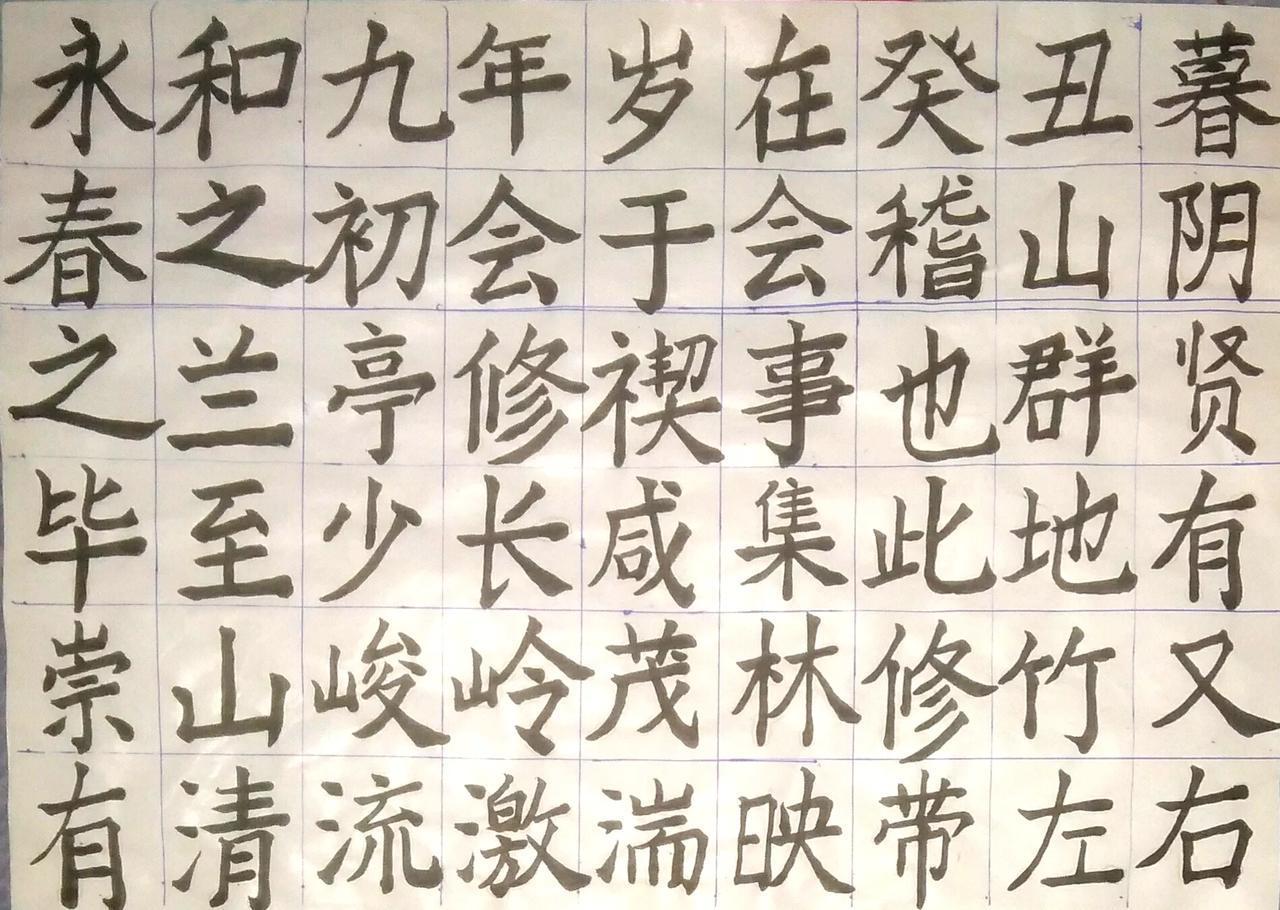 永和九年岁在癸丑暮
春之初会于会稽山阴
之兰亭修禊事也群贤
毕至少长咸集此地有
崇山峻岭茂林修竹又
有清流激湍映带左右